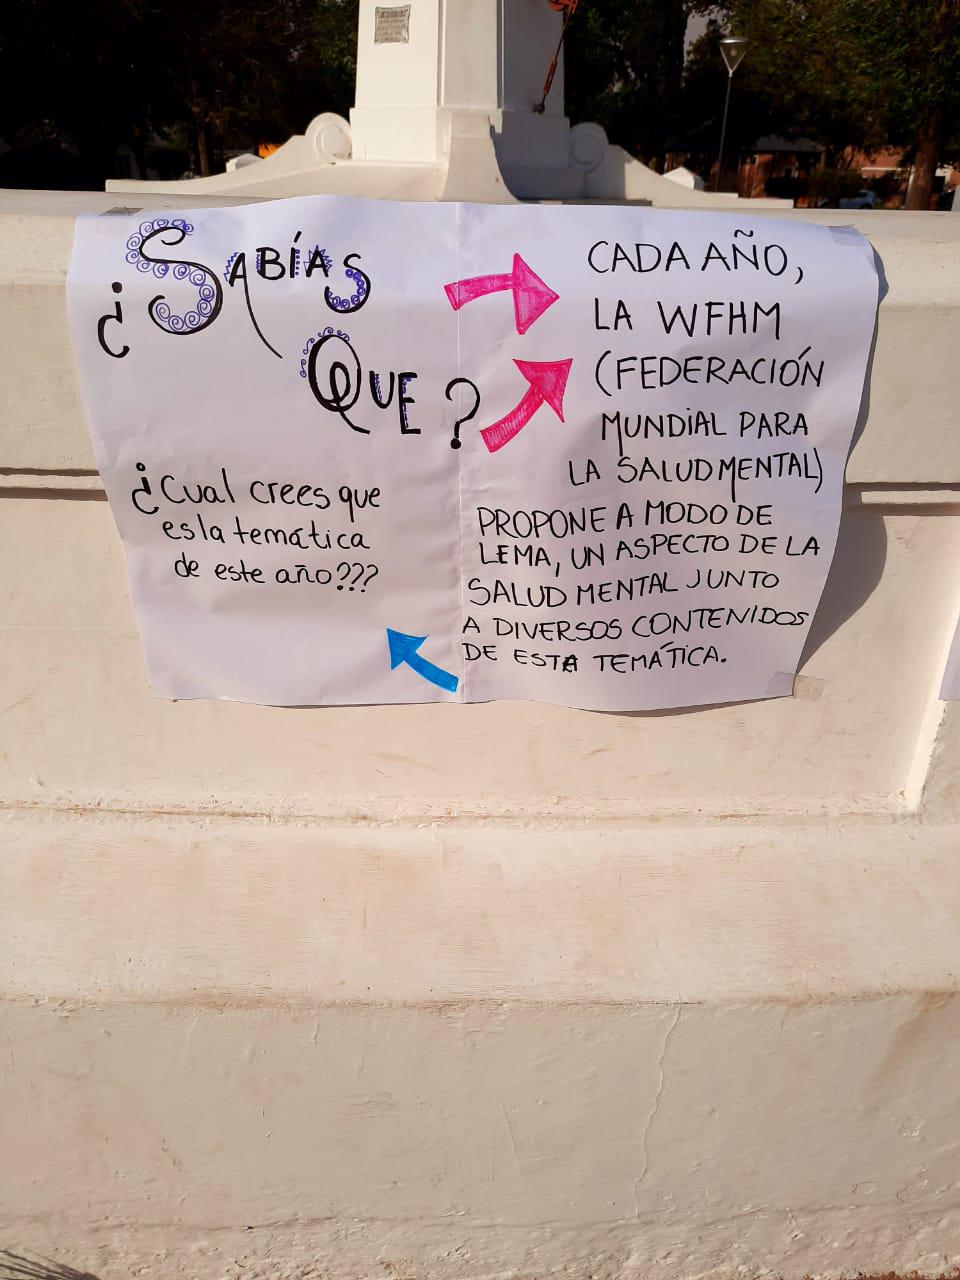 ¿SABÍAS
QUE?
¿Cual crees que
es la temática
de este año???
CADA AÑO,
LA WFHM
(FEDERACIÓN
MUNDIAL PARA
LA SALUD MENTAL)
PROPONE A MODO DE
LEMA, UN ASPECTO DE LA
SALUD MENTAL JUNTO
A DIVERSOS CONTENIDOS
DE ESTA TEMÁTICA.